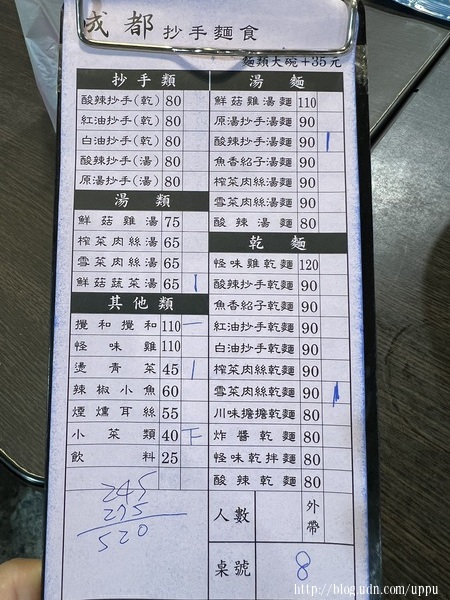 成都 抄手麵食
麵類大碗+35元
抄手類
酸辣抄手(乾) 80
紅油抄手(乾) 80
白油抄手(乾) 80
酸辣抄手(湯) 80
原湯抄手(湯) 80
湯類
鮮菇雞湯 75
榨菜肉絲湯 65
雪菜肉絲湯 65
鮮菇蔬菜湯 65 1
其他類
攪和攪和 110 一
怪味雞 110
燙青菜 45 1
辣椒小魚 60
煙燻耳絲 55
小菜類 40 下
飲料 25
245
275
520
湯麵
鮮菇雞湯麵 110
原湯抄手湯麵 90
酸辣抄手湯麵 90 1
魚香紹子湯麵 90
榨菜肉絲湯麵 90
雪菜肉絲湯麵 90
酸辣湯麵 80
乾麵
怪味雞乾麵 120
酸辣抄手乾麵 90
魚香紹子乾麵 90
紅油抄手乾麵 90
白油抄手乾麵 90
榨菜肉絲乾麵 90
雪菜肉絲乾麵 90 1
川味擔擔乾麵 80
炸醬乾麵 80
怪味乾拌麵 80
酸辣乾麵 80
人數 外帶
桌號 8
http://blog.udn.com/uppu